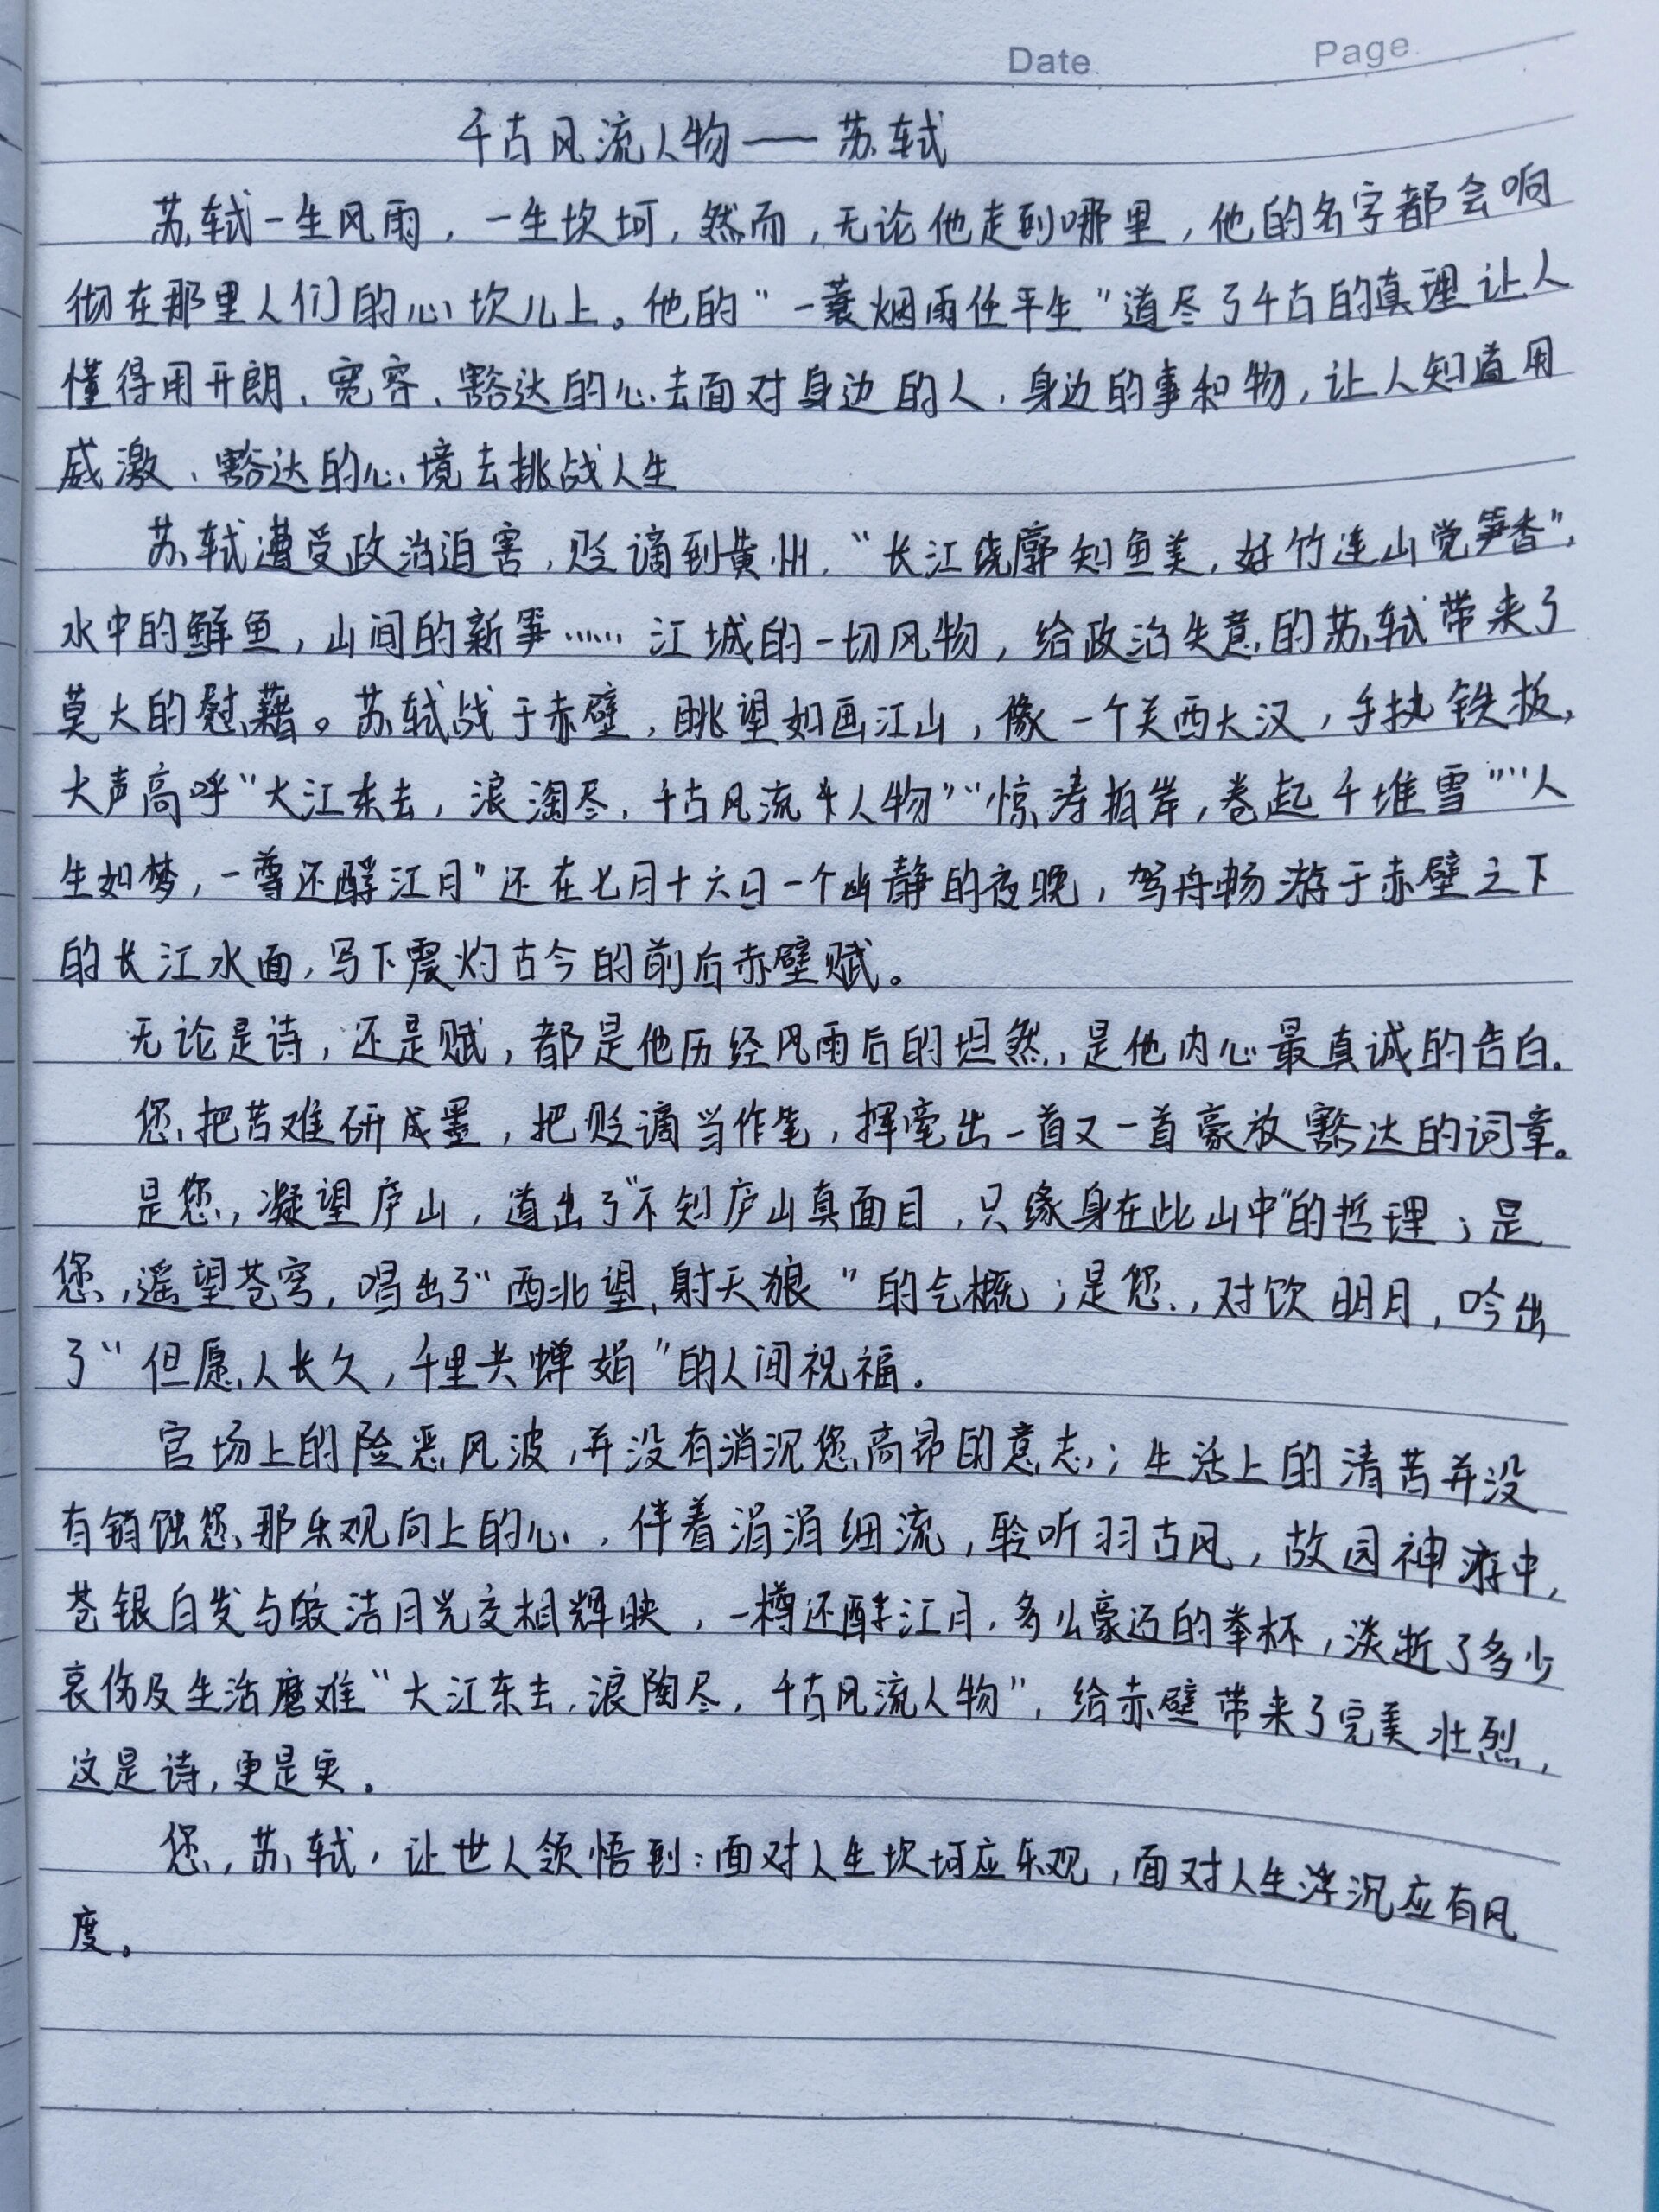 Date Page
千古风流人物——苏轼
苏轼一生风雨，一生坎坷，然而，无论他走到哪里，他的名字都会响
彻在那里人们的心坎儿上。他的“一蓑烟雨任平生”道尽了千古的真理让人
懂得用开朗、宽容、豁达的心去面对身边的人、身边的事和物，让人知道用
感激、豁达的心境去挑战人生
苏轼遭受政治迫害，贬谪到黄州，“长江绕廓知鱼美，好竹连山觉笋香”，
水中的鲜鱼，山间的新笋……江城的一切风物，给政治失意的苏轼带来了
莫大的慰藉。苏轼战于赤壁，眺望如画江山，像一个关西大汉，手执铁板，
大声高呼“大江东去，浪淘尽，千古风流人物”“惊涛拍岸，卷起千堆雪”“人
生如梦，一尊还酹江月”还在七月十六日一个幽静的夜晚，驾舟畅游于赤壁之下
的长江水面，写下震灼古今的前后赤壁赋。
无论是诗，还是赋，都是他历经风雨后的坦然，是他内心最真诚的告白.
您把苦难研成墨，把贬谪当作笔，挥毫出一首又一首豪放豁达的词章。
是您，凝望庐山，道出了“不知庐山真面目，只缘身在此山中”的哲理；是
您，遥望苍穹，唱出了“西北望，射天狼”的气概；是您，对饮明月，吟出
了“但愿人长久，千里共蝉娟”的人间祝福.
官场上的险恶风波，并没有消沉您高昂的意志；生活上的清苦并没
有销蚀您那乐观向上的心，伴着涓涓细流，聆听羽古风，故园神游中，
苍银白发与皎洁月光交相辉映，一樽还酹江月，多么豪迈的举杯，淡逝了多少
哀伤及生活磨难“大江东去，浪陶尽，千古风流人物”，给赤壁带来了完美壮烈，
这是诗，更是实。
您，苏轼，让世人领悟到：面对人生坎坷应乐观，面对人生浮沉应有风
度。